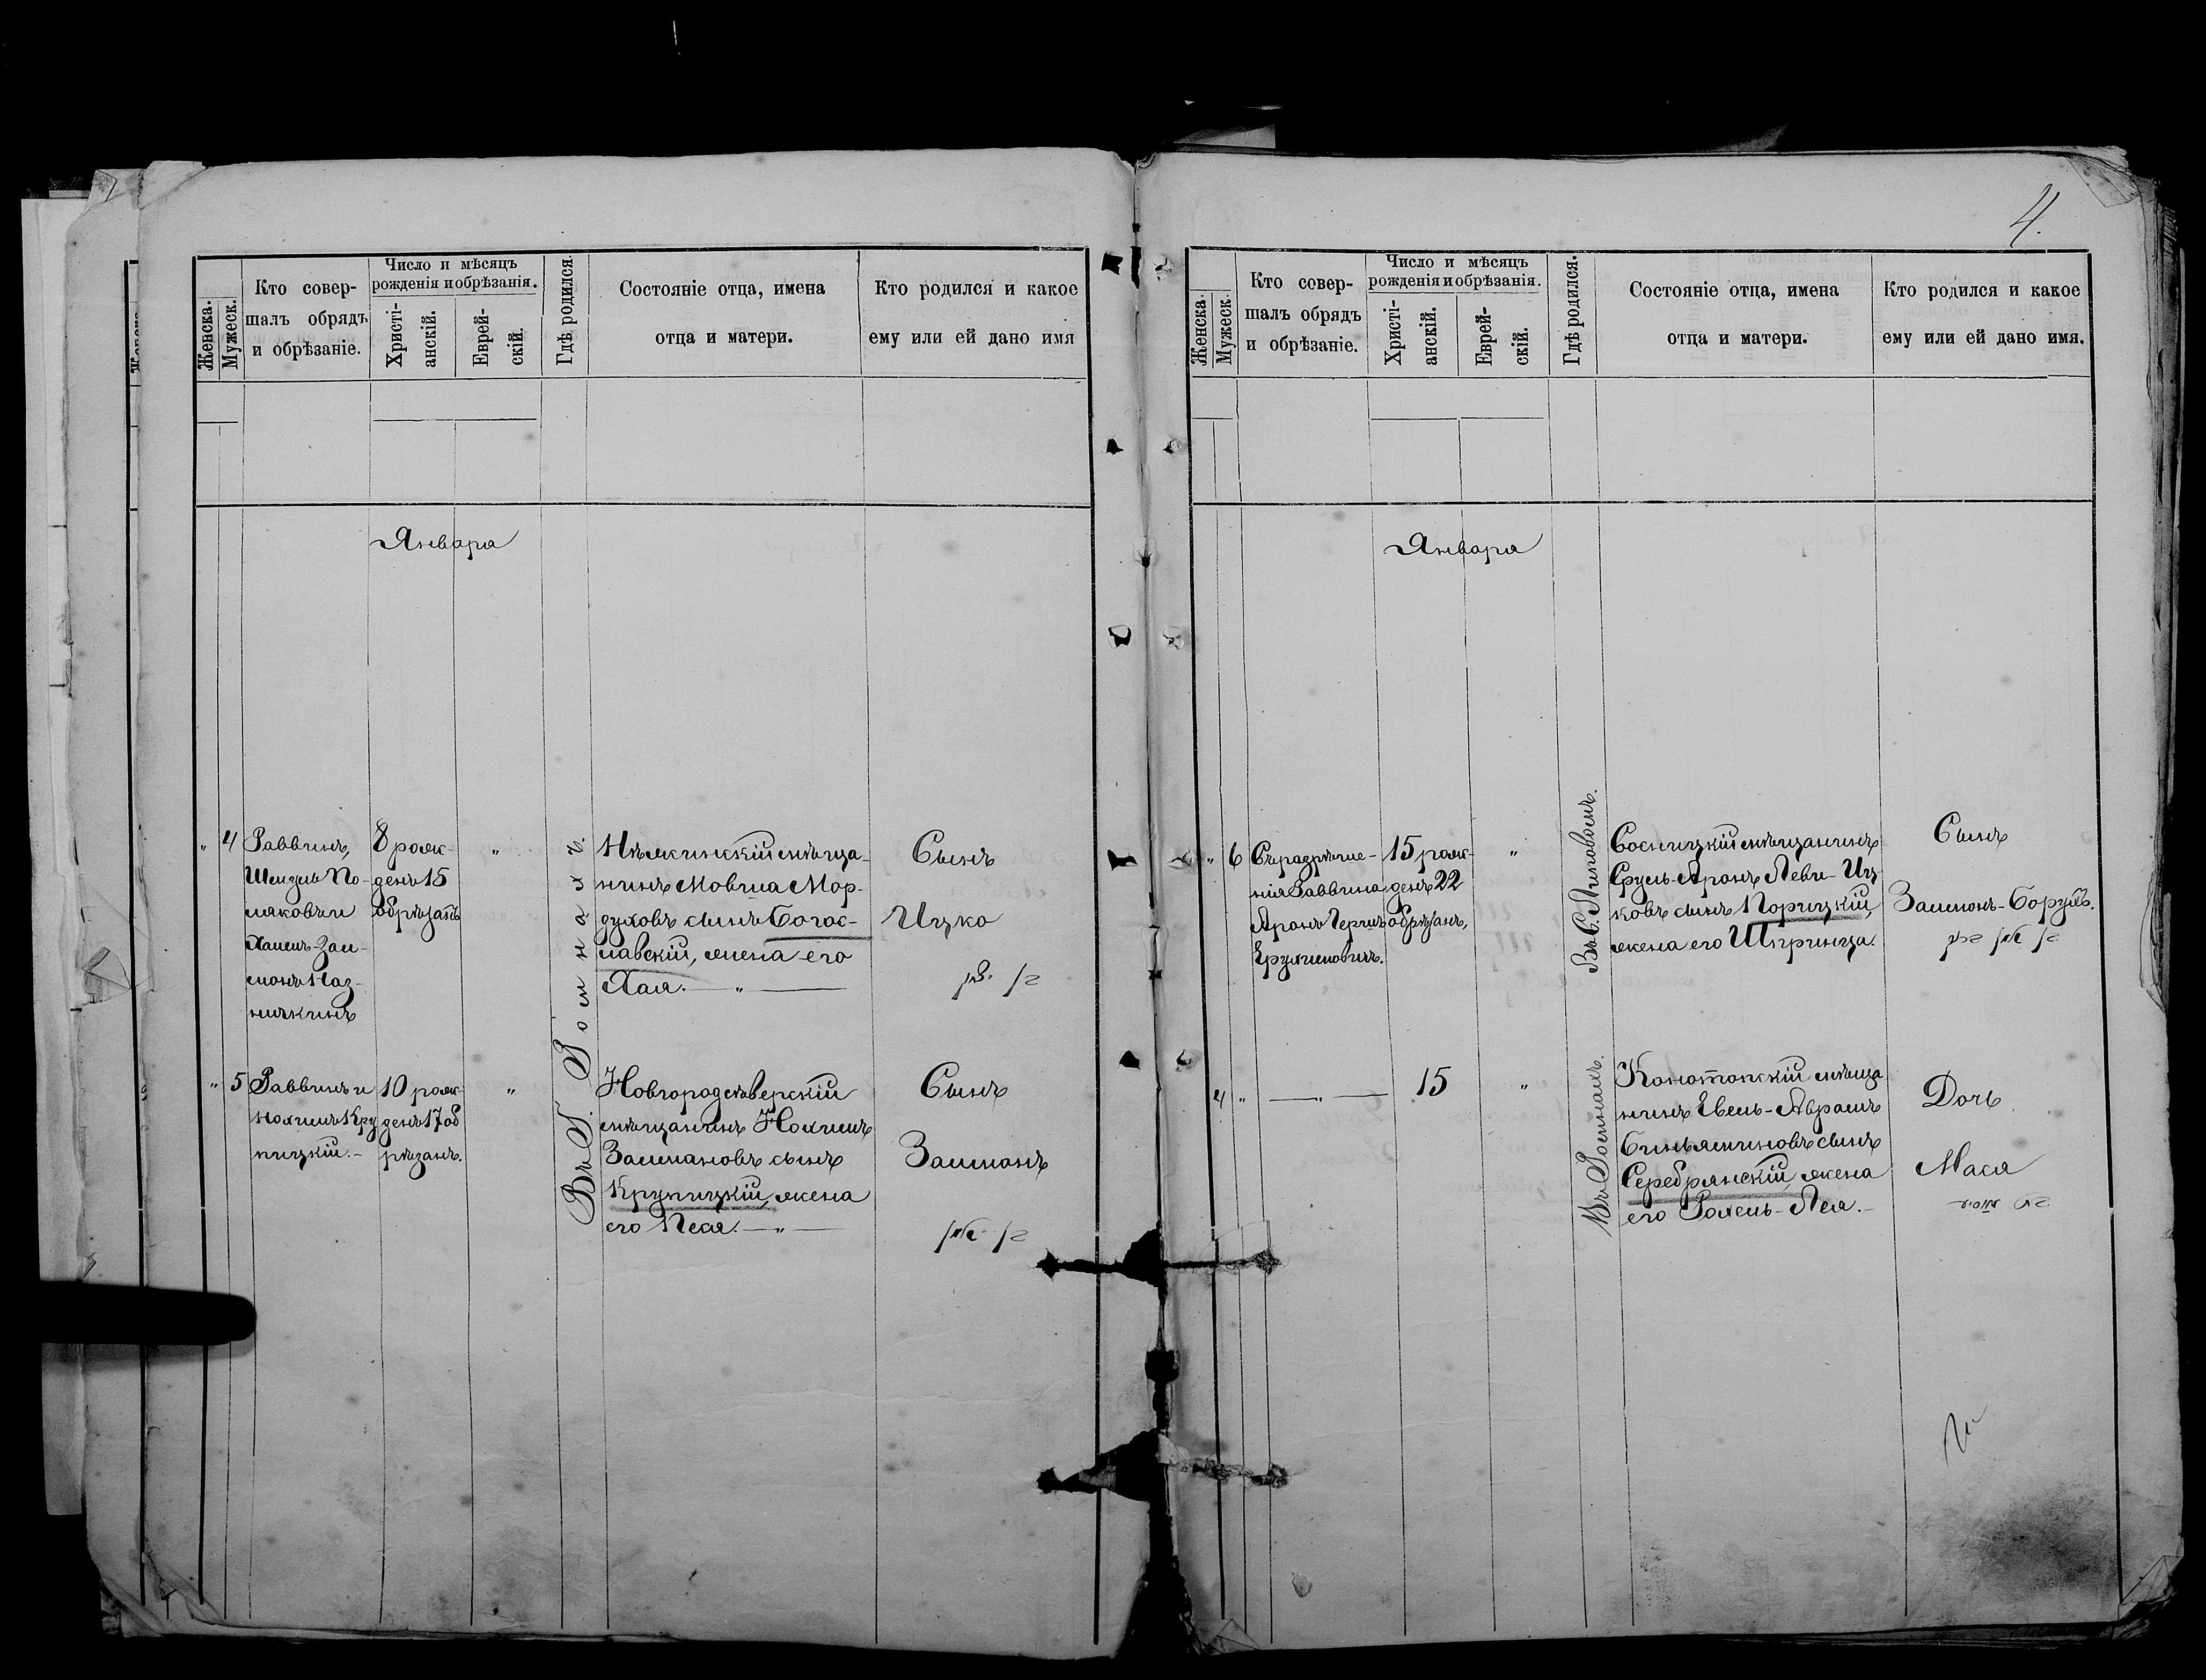 4.
Женска.
Мужеск.
Кто совер-
шалъ обрядъ
и обрѣзаніе.
Число и мѣсяцъ
рожденія и обрѣзанія.
Христі-
анскій.
Еврей-
скій.
Гдѣ родился.
Состояніе отца, имена
отца и матери.
Кто родился и какое
ему или ей дано имя
Января
"
4
Раввинъ,
Шендль По-
ляковъ и
Залмонъ
8 рож-
денъ 15
обрѣзанъ
"
Нѣжинскій мѣща-
нинъ Мовша Мор-
духовъ сынъ Богос-
лавскій, жена его
Хая. — " —
Сынъ
Ицко
"
5
Раввинъ и
Нохимъ Кру
пицкій. -
10 рож-
денъ 17 об
рѣзанъ.
"
Въ Г. Ромнахъ.
Новгородсѣверскій
мѣщанинъ Нохимъ
Залмановъ сынъ
Крупицкій, жена
его Песя. — " —
Сынъ
Залманъ
Женска
Мужеск.
Кто совер-
шалъ обрядъ
и обрѣзаніе.
Число и мѣсяцъ
рожденія и обрѣзанія.
Христі-
анскій.
Еврей-
скій.
Гдѣ родился.
Состояніе отца, имена
отца и матери.
Кто родился и какое
ему или ей дано имя.
Января
"
6
Съ разрѣше-
нія Раввина
Аронъ Гершъ
Ерухимовичъ.
15 рож-
денъ 22
обрѣзанъ,
"
Въ С. Липовомъ.
Сосницкій мѣщанинъ
Сруль-Аронъ Леви-Иц
ковъ сынъ Порицкій,
жена его Шпринца.
Сынъ
Залмонъ-Борухъ.
4
"
— " —
15
"
Въ Ромнахъ.
Конотопскій мѣща
нинъ Евель-Аврамъ
Биньяминовъ сынъ
Серебрянскій, жена
его Рохель-Лея. -
Дочь
Мася